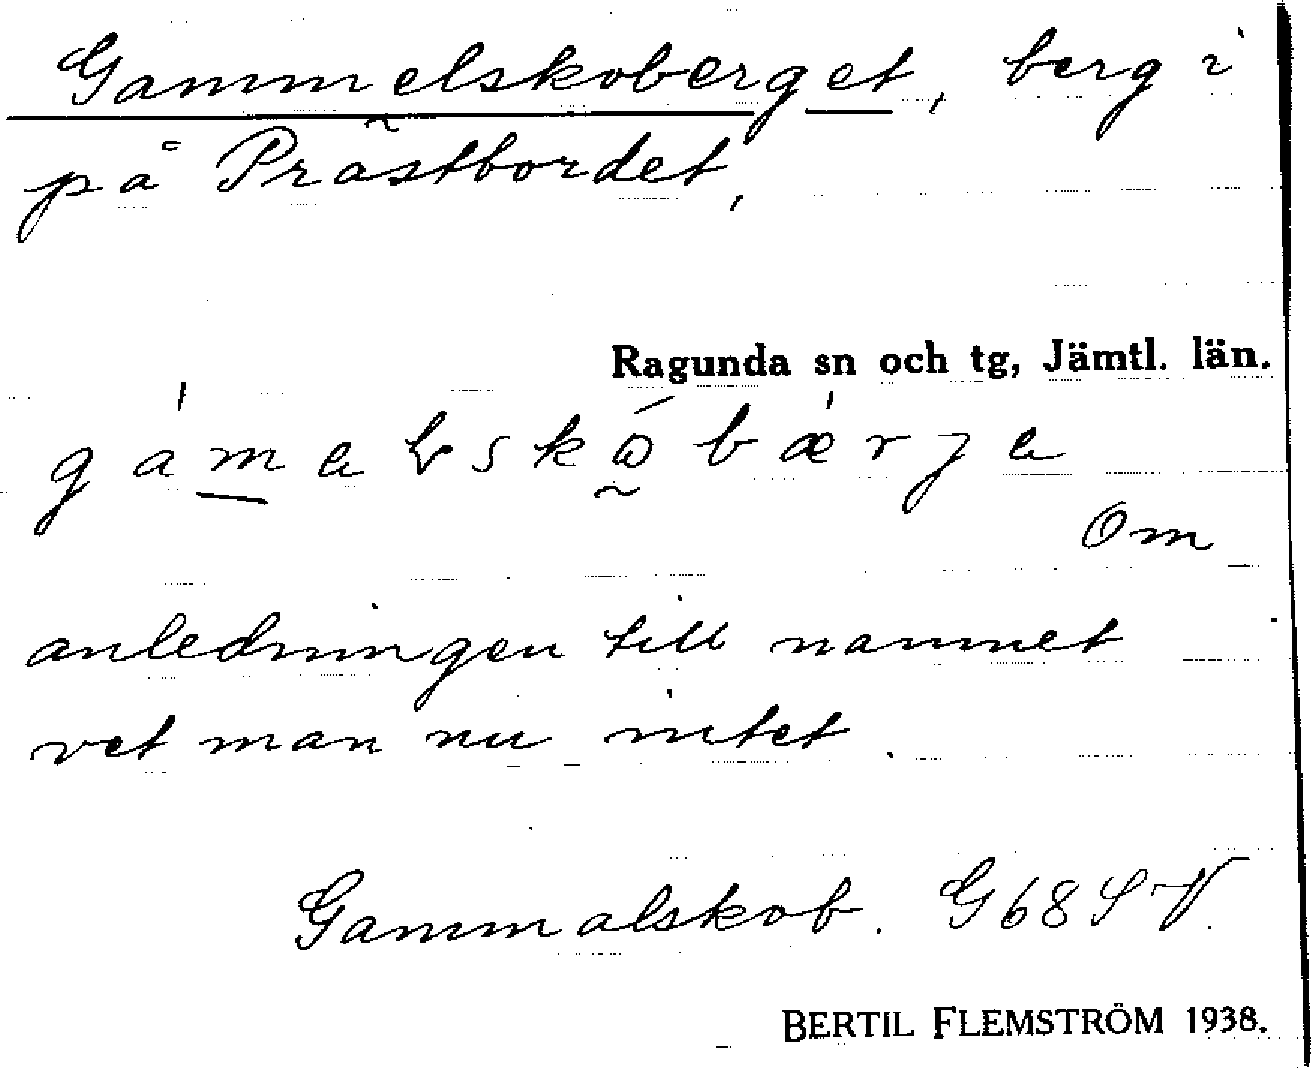 Gammelskoberget, berg i
på Prästbordet,
Ragunda sn och tg, Jämtl. län.
Om
anledningen till namnet
vet man nu intet.
Gammalskob. G68SV.
BERTIL FLEMSTRÖM 1938.